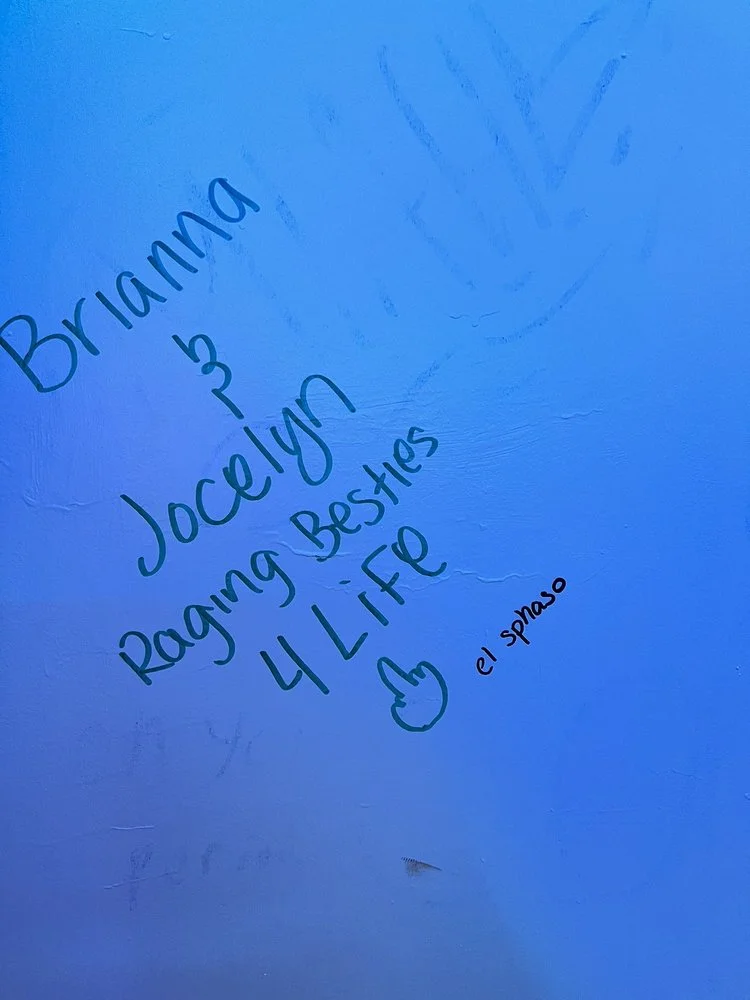 Brianna
&
Jocelyn
Raging Besties
4 Life
el sphaso